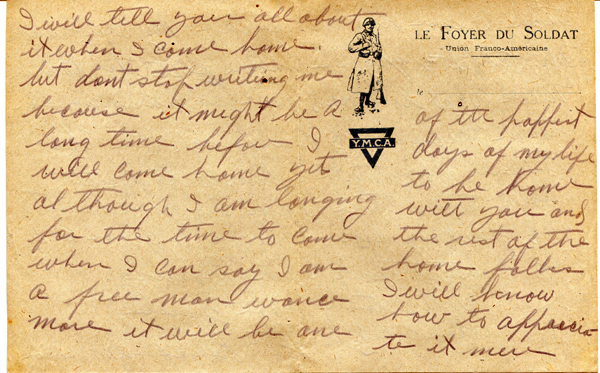 I will tell you all about
it when I come home.
but dont stop writing me
because it might be a
long time before I
will come home yet
although I am longing
for the time to come
when I can say I am
a free man wance
more it will be one
LE FOYER DU SOLDAT
Union Franco-Américaine
le
Y.M.C.A.
of the happiest
days of my life
to be home
with you and
the rest of the
home folks
I will know
how to appricia
te it more